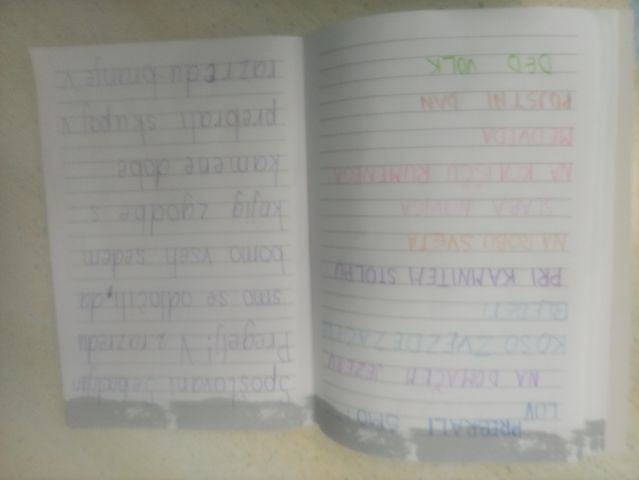 PREBRALI SMO:
LOV
NA DOMAČEM JEZERU,
KO SO ZVEZDE ZAČELE
BLEDETI
PRI KAMNITEM STOLPU
NA ROBU SVETA
SLABA NOVICA
NA KOLEČU RUMENEGA
MEDVEDA
POJSTNI DAN
DED VOLK
Spoštovani
Pregelj! V 2. razredu
smo se odločili, da
bomo vseh sedem
knjig zgodbe s
kamene dobe
prebrali skupaj v
razredu-branje v